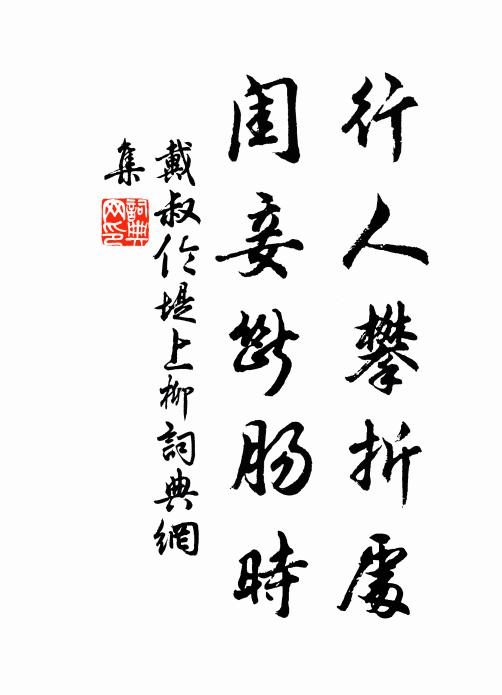 行人攀折處
閨妾斷腸時
戴叔伦堤上柳詞典網
集
詞典
网印